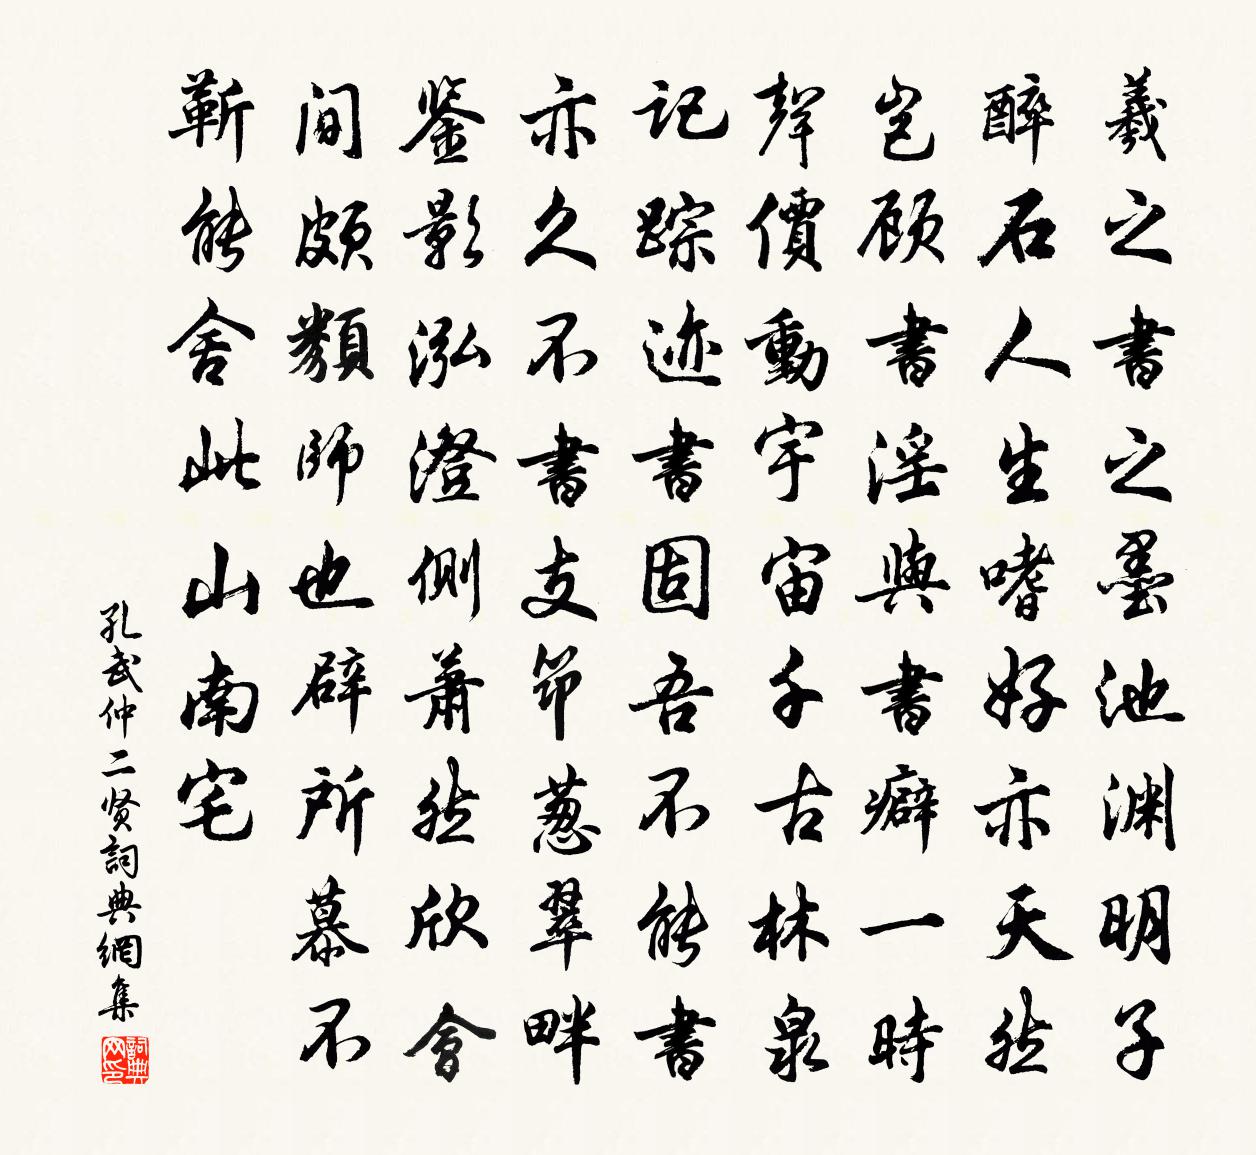 羲之書之墨池渊明子
醉石人生嗜好亦天然
岂顾書淫與書癖一時
聲價動宇宙千古林泉
记踪迹書固吾不能書
亦久不書支筇葱翠畔
鉴影泓澄侧萧然欣會
间頗類師也辟所慕不
蕲能舍此山南宅
孔武仲二贤詞典網集
詞典网印